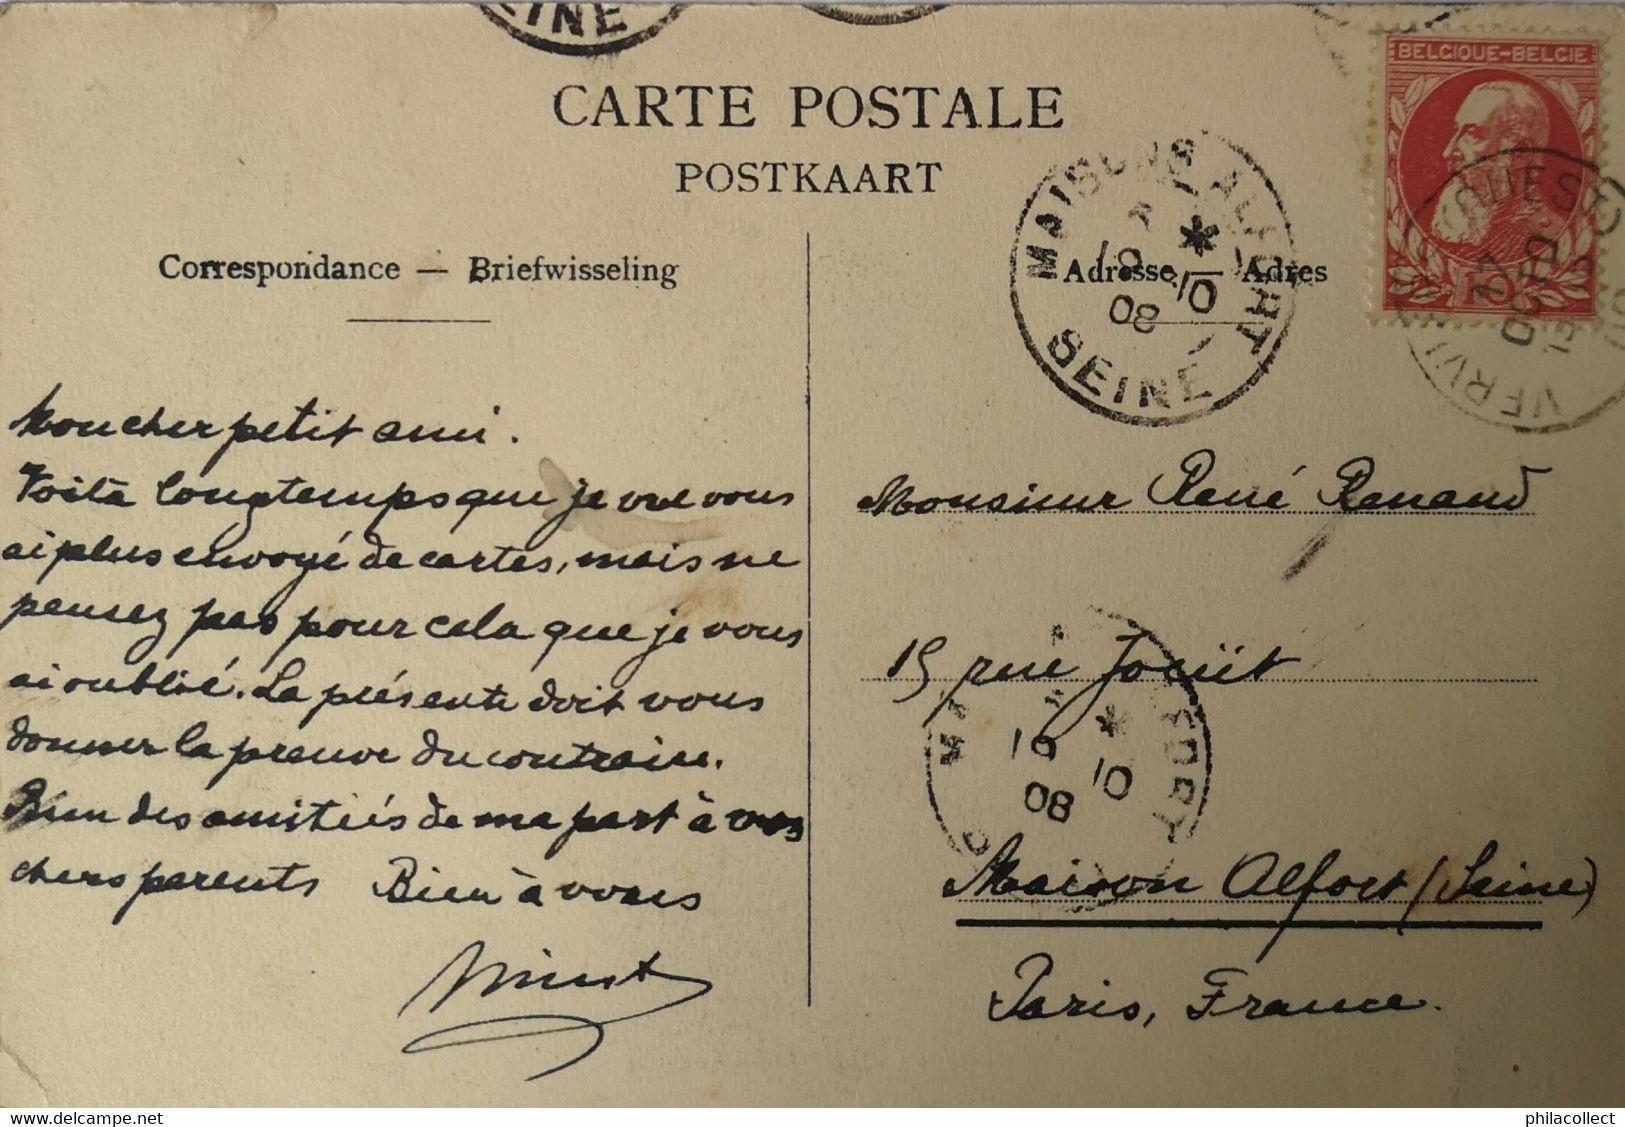 EINE
BELGIQUE-BELGIE
CARTE POSTALE
POSTKAART
MAISONS ALFORT
10
08
SEINE
Correspondance — Briefwisseling
Adresse — Adres
OUEST
VERVI
Mon cher petit ami.
Voilà longtemps que je ne vous
ai plus envoyé de cartes, mais ne
pensez pas pour cela que je vous
ai oublié. La présente doit vous
donner la preuve du contraire.
Bien des amitiés de ma part à vos
chers parents Bien à vous
Monsieur René Renaud
15 rue
10
08
Maison Alfort (Seine)
Paris, France.
www.delcampe.net
philacollect